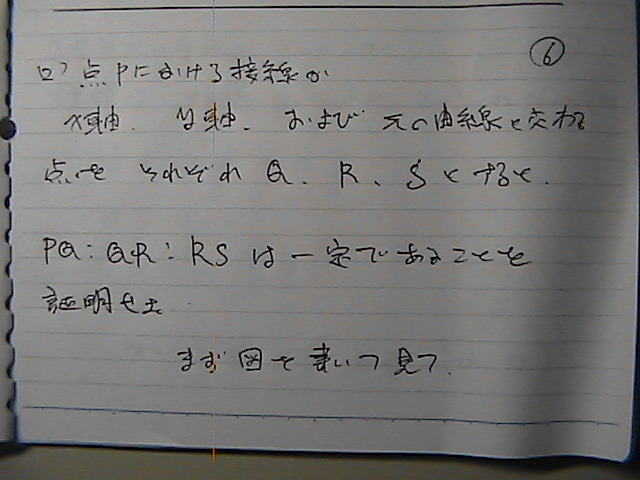 ⑥
ロ) 点Pにおける接線が
x軸、y軸、および 元の曲線と交わる
点を それぞれ Q、R、S とすると、
PQ:QR:RS は 一定であることを
証明せよ
まず 図を 書いて 見て.